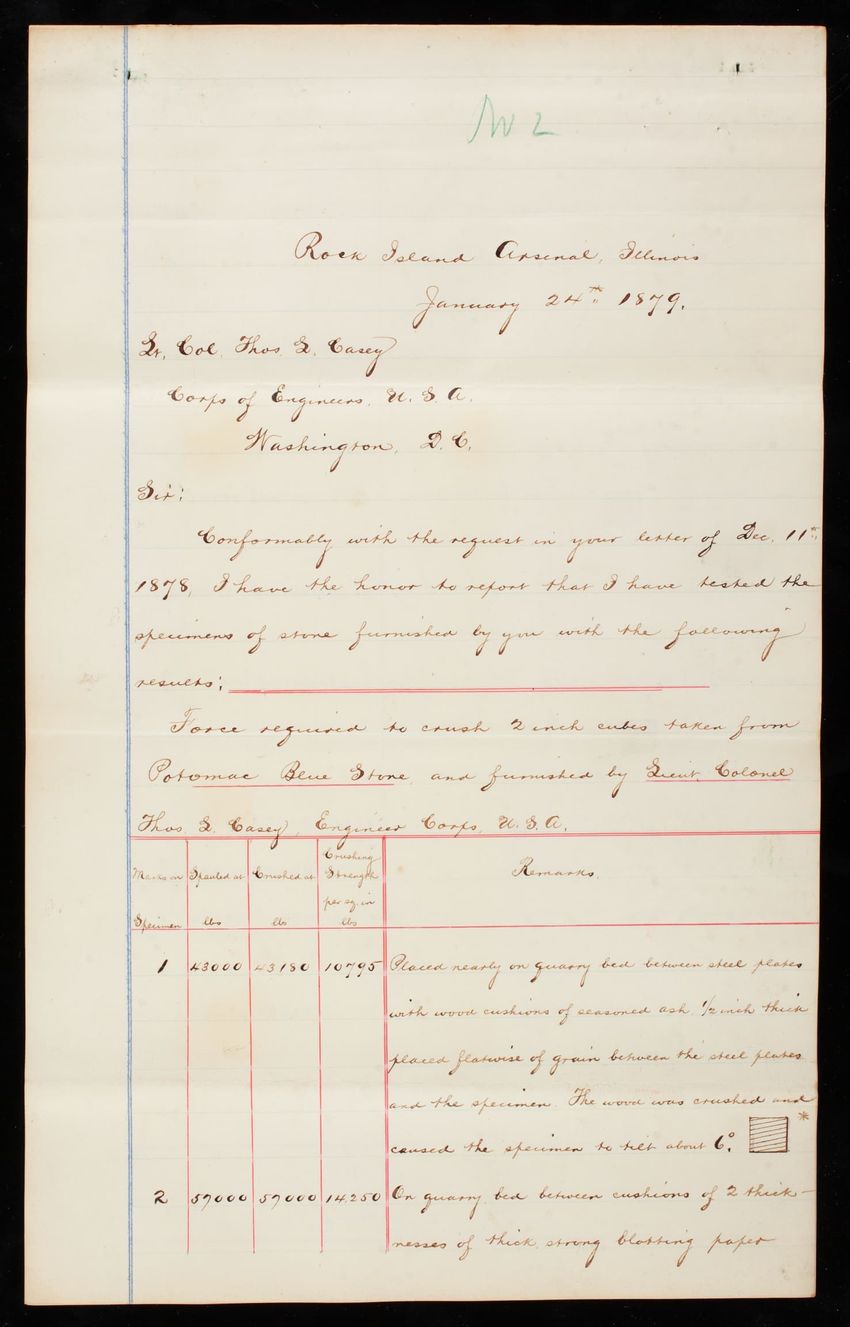 No 2
Rock Island Arsenal, Illinois
January 24th 1879.
Lt. Col. Thos. L. Casey
Corps of Engineers, U. S. A.
Washington, D. C.
Sir:
Conformably with the request in your letter of Dec. 11th
1878, I have the honor to report that I have tested the
specimens of stone furnished by you with the following
results:
Force required to crush 2 inch cubes taken from
Potomac Blue Stone, and furnished by Lieut. Colonel
Thos. L. Casey, Engineer Corps, U. S. A.
Marks on Specimen
Spauled at lbs
Crushed at lbs
Crushing Strength per sq. in lbs
Remarks.
1 43000 43180 10795 Placed nearly on quarry bed between steel plates
with wood cushions of seasoned ash, 1/2 inch thick
placed flatwise of grain between the steel plates
and the specimen. The wood was crushed and
caused the specimen to tilt about 6°. *
2 57000 57000 14,250 On quarry bed between cushions of 2 thick-
nesses of thick, strong blotting paper